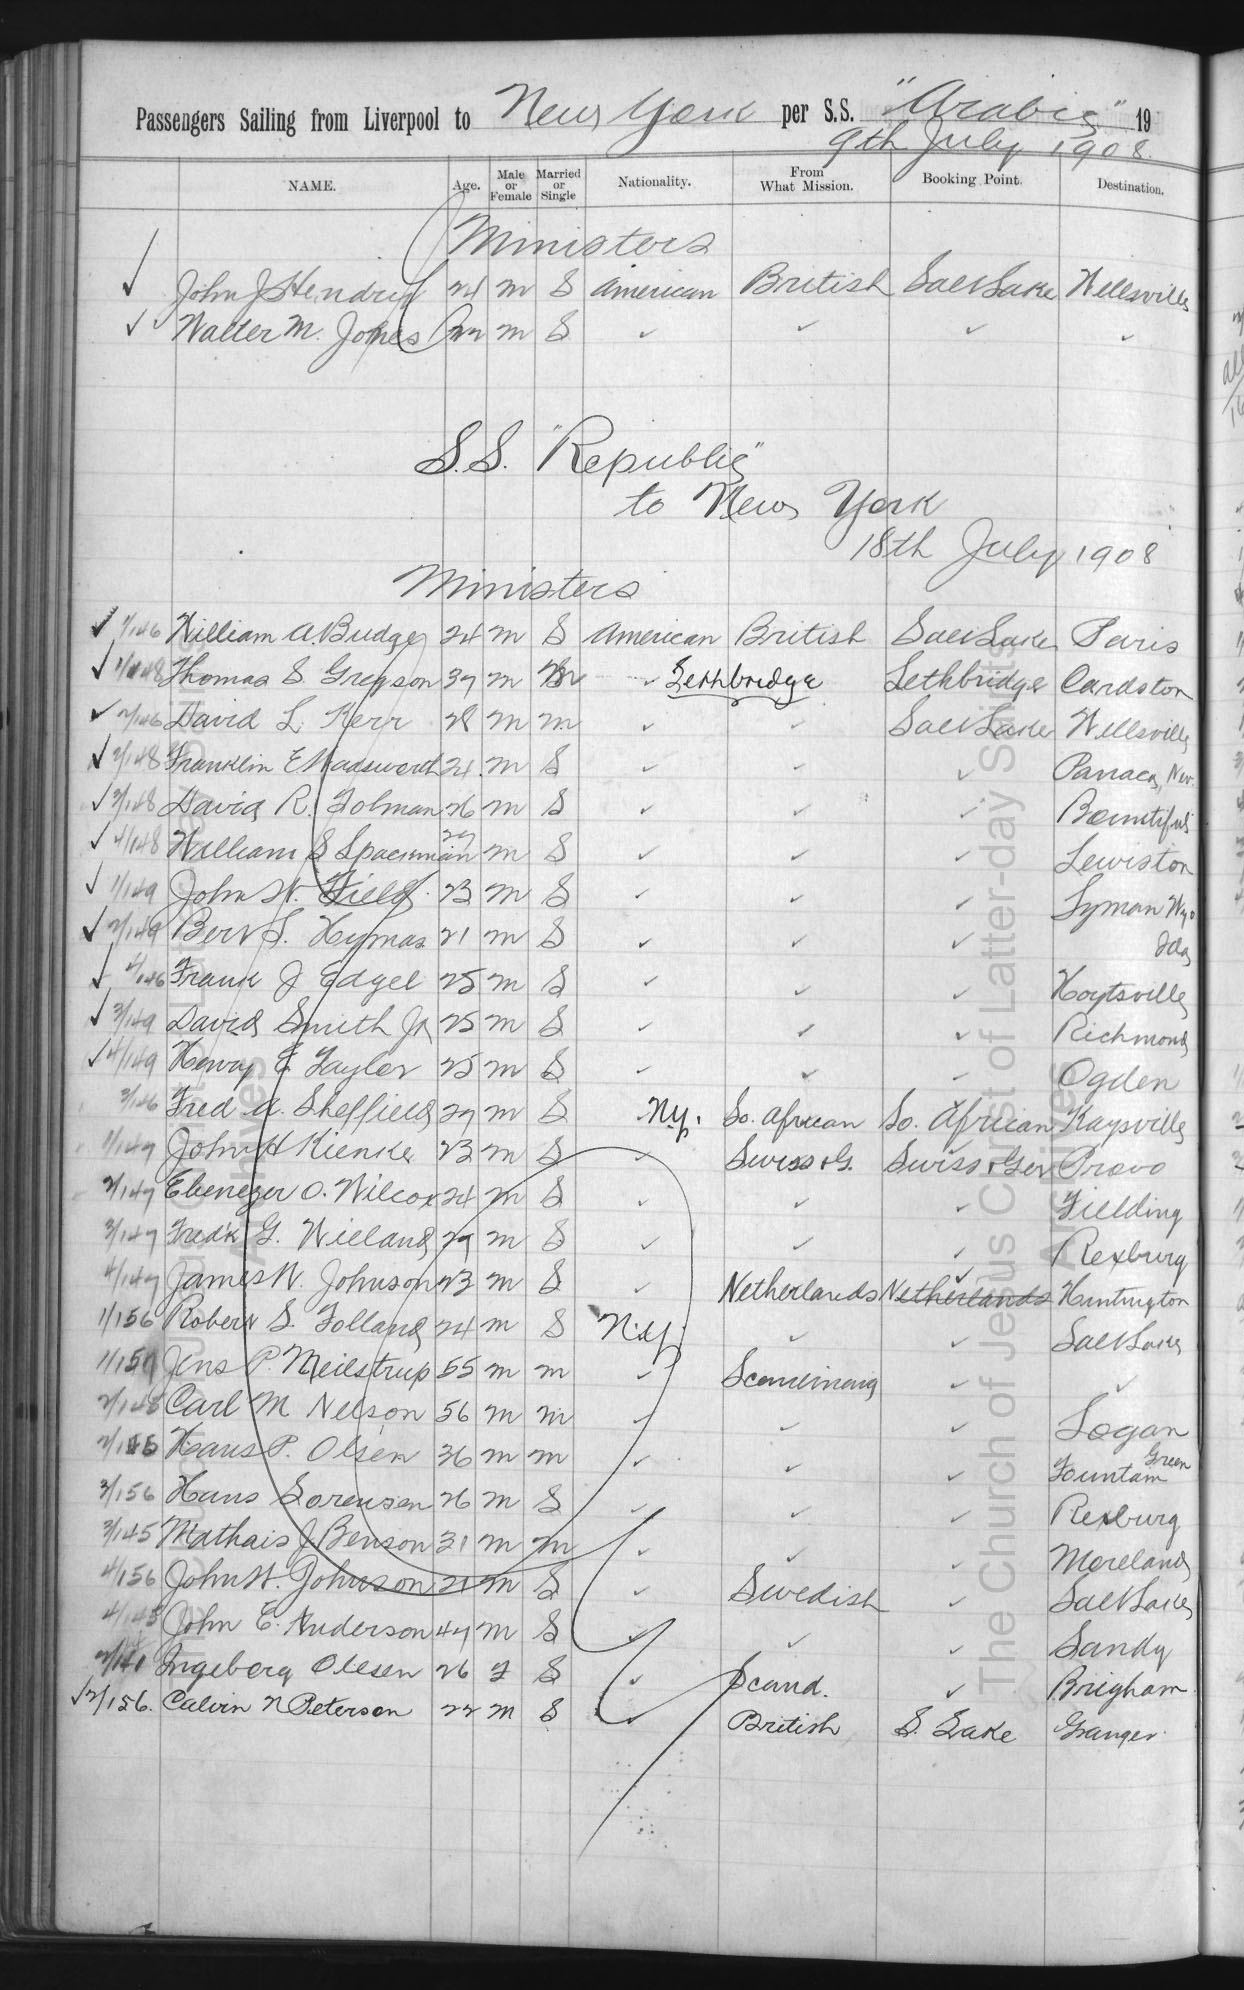 Passengers Sailing from Liverpool to New York per S.S. "Arabic" 19
9th July 1908.
NAME. Age. Male or Female Married or Single Nationality. From What Mission. Booking Point. Destination.
Ministers
John J Hendry 24 m S American British Salt Lake Wellsville
Walter M. Jones 22 m S ✓ ✓ ✓ ✓
S.S. "Republic"
to New York
18th July 1908
Ministers
1/146 William A. Budge 24 m S American British Salt Lake Paris
1/148 Thomas S Gregson 39 m m ✓ Lethbridge Lethbridge Cardston
2/146 David L. Kerr 28 m m ✓ ✓ Salt Lake Wellsville
2/148 Franklin E Wadsworth 24 m S ✓ ✓ ✓ Panaca, Nev.
3/148 David R. Tolman 26 m S ✓ ✓ ✓ Bountiful
4/148 William S Spackman 29 m S ✓ ✓ ✓ Lewiston
1/149 John W. Field 23 m S ✓ ✓ ✓ Lyman Wyo
2/149 Bert L. Hymas 21 m S ✓ ✓ ✓ Ida
4/146 Frank J Edgel 25 m S ✓ ✓ ✓ Hoytsville
3/149 David Smith Jr 25 m S ✓ ✓ ✓ Richmond
4/149 Henry E Taylor 25 m S ✓ ✓ ✓ Ogden
3/146 Fred A. Sheffield 27 m S N.y. So. African So. African Kaysville
1/147 John H Kienke 23 m S ✓ Swiss & G. Swiss & Ger Provo
2/147 Ebenezer O. Wilcox 24 m S ✓ ✓ ✓ Fielding
3/147 Fredk G. Wieland 29 m S ✓ ✓ ✓ Rexburg
4/147 James W. Johnson 23 m S ✓ Netherlands Netherlands Huntington
1/156 Robert S. Folland 24 m S N.y. ✓ ✓ Salt Lake
Jens P. Meilstrup 55 m m ✓ Scandinavia ✓ ✓
2/145 Carl M Nelson 56 m m ✓ ✓ ✓ Logan
Hans P. Olsen 36 m m ✓ ✓ ✓ Fountain Green
3/156 Hans Sorensen 26 m S ✓ ✓ ✓ Rexburg
3/145 Mathais J. Benson 31 m m ✓ ✓ ✓ Moreland
4/156 John H. Johnson 21 m S ✓ Swedish ✓ Salt Lake
4/145 John E. Anderson 47 m S ✓ ✓ ✓ Sandy
Ingeborg Olesen 26 f S ✓ Scand. ✓ Brigham
2/156. Calvin N Peterson 22 m S ✓ British S. Lake Granger
The Church of Jesus Christ of Latter-day Saints
Archives